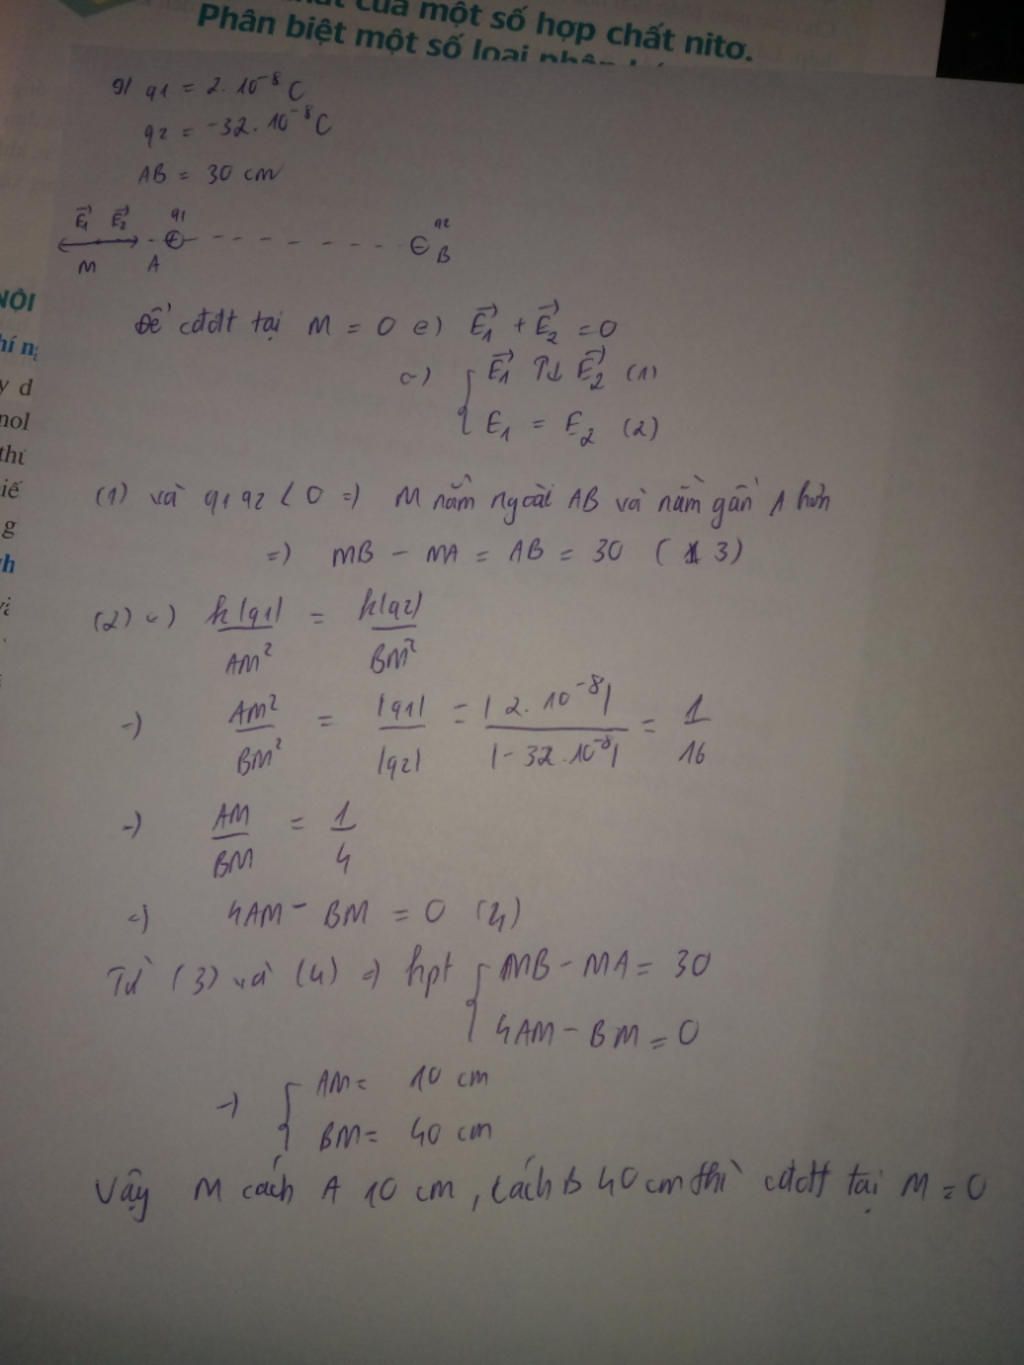 của một số hợp chất nitơ.
Phân biệt một số loại phân
9/ q1 = 2.10⁻⁸ C
q2 = -32.10⁻⁸ C
AB = 30 cm
E₁ E₂ q1 q2
M A B
NỘI
Để cđđt tại M = 0 (=) E₁ + E₂ = 0
(=) { E₁ ↑↓ E₂ (1)
E₁ = E₂ (2)
(1) và q1q2 < 0 => M nằm ngoài AB và nằm gần A hơn
=) MB - MA = AB = 30 (3)
(2) (=) k|q1|/AM² = k|q2|/BM²
-) AM²/BM² = |q1|/|q2| = |2.10⁻⁸|/|-32.10⁻⁸| = 1/16
-) AM/BM = 1/4
(=) 4AM - BM = 0 (4)
Từ (3) và (4) => hpt { MB - MA = 30
4AM - BM = 0
-) { AM = 10 cm
BM = 40 cm
Vậy M cách A 10 cm, cách B 40 cm thì cđđt tại M = 0